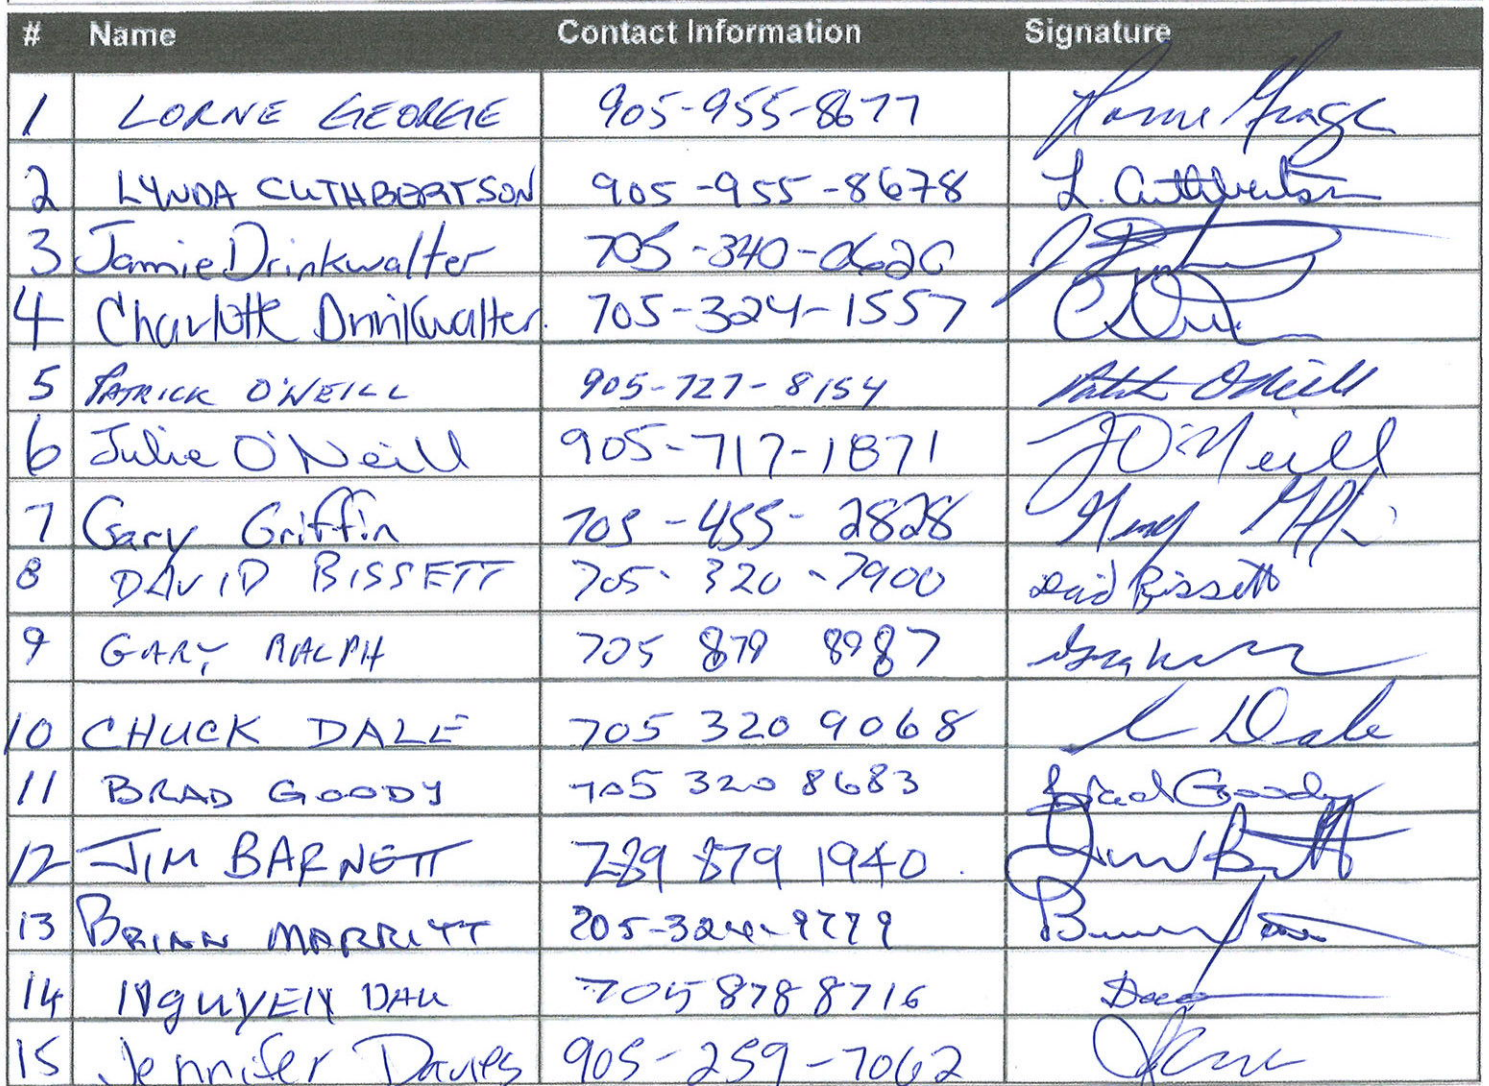 # Name Contact Information Signature
1 LORNE GEORGE 905-955-8677
2 LYNDA CUTHBERTSON 905-955-8678 L. Cuthbertson
3 Jamie Drinkwalter 705-340-0620
4 Charlotte Drinkwalter. 705-324-1557
5 PATRICK O'NEILL 905-727-8154 Patrick O'Neill
6 Julie O'Neill 905-717-1871 J O'Neill
7 Gary Griffin 705-455-2828
8 DAVID BISSETT 705-320-7900 David Bissett
9 GARY RALPH 705 879 8987
10 CHUCK DALE 705 320 9068 C Dale
11 BRAD GOODY 705 320 8683 Brad Goody
12 JIM BARNETT 289 879 1940
13 BRIAN MARRITT
14 NGUYEN DAU 705 878 8716
15 Jennifer Davies 905-259-7062